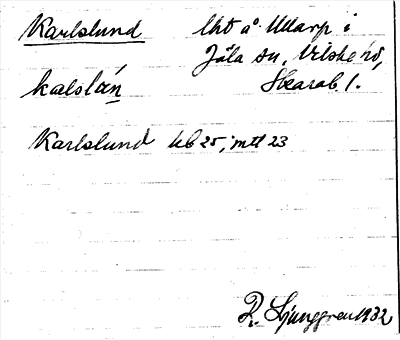 Karlslund lht å Utlarp i
Jäla sn, Vilske hd,
kalslán Skarab. l.
Karlslund kb 25; mtl 23
R. Ljunggren 1932